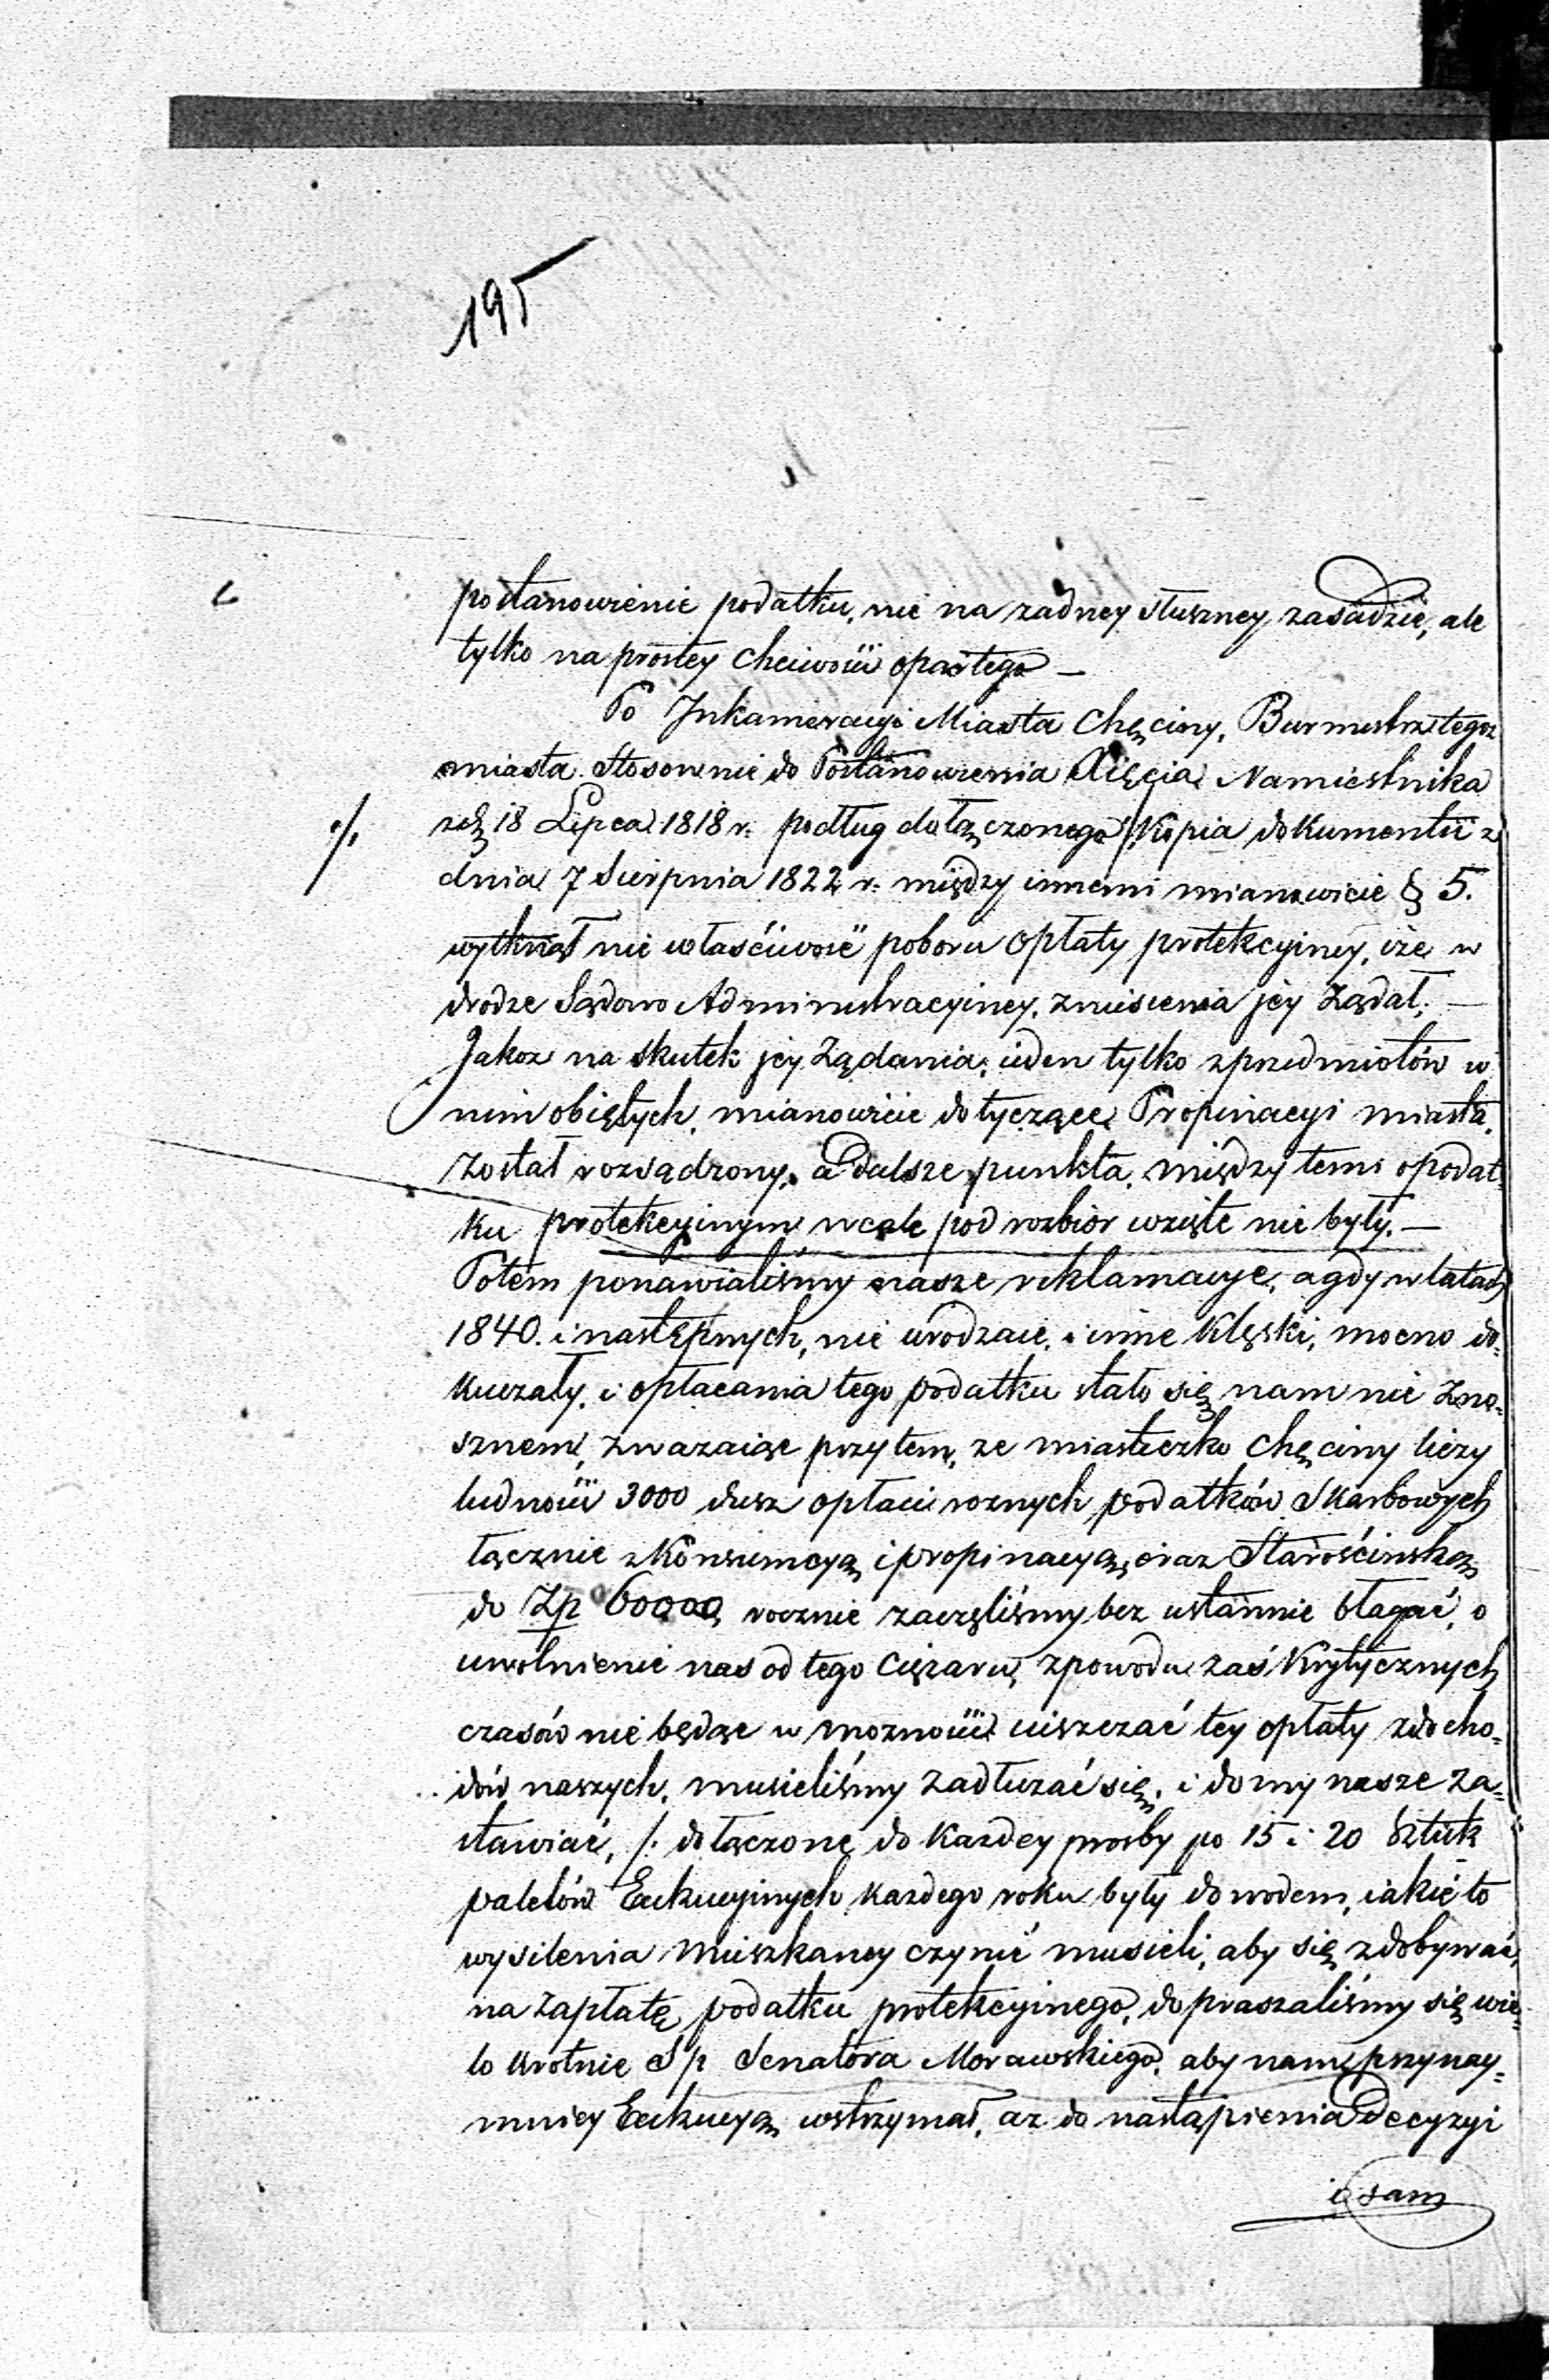 195
postanowienie podatku, nie na zadney słuszney zasadzie, ale
tylko na prostey chciwości opartego —
Po Inkameracyi Miasta Chęciny, Burmistrz tegoz
miasta stosownie do Postanowienia Xięcia Namiestnika
z d. 18 Lipca 1818 r. podług dołączonego Kopia dokumentu z
./.
dnia 7 Sierpnia 1822 r. między innemi mianowicie § 5.
wytknął nie właściwość poboru opłaty protekcyiney, iże w
drodze Sądowo Administracyiney, zniesienia jey żądał, —
Jakoz na skutek jey żądania, ieden tylko zprzedmiotów w
nim obiętych, mianowicie dotyczące Propinacyi miasta,
został rozsądzony, a dalsze punkta, między temi opodat-
ku protekcyinym wcale pod rozbior wzięte nie były. —
Potem ponawialiśmy nasze reklamacye, a gdy w latach
1840. i następnych, nie urodzaie, i inne klęski, mocno do-
kuczały, i opłacania tego podatku stało się nam nie zno-
sznem, zwazaiąc przytem, ze miasteczko Chęciny liczy
ludności 3000 dusz opłaci roznych podatków Skarbowych
łącznie z Konsumcyą i propinacyą, oraz Starościńską
do Zp 60000 rocznie zaczęliśmy bez ustannie błagać, o
uwolnienie nas od tego ciężaru, zpowodu zaś Krytycznych
czasów nie będąc w mozności uiszczać tey opłaty zdocho-
dów naszych, musieliśmy zadłużać się, i domy nasze za-
stawiać, /: dołączone do każdey prosby po 15 i 20 Sztuk
paletów Exekucyinych każdego roku były dowodem, iakie to
wysilenia Mieszkancy czynić musieli, aby się zdobywać,
na zapłatę podatku protekcyinego, dopraszaliśmy się wie-
lo krotnie S p Senatora Morawskiego, aby nam przynay-
mniey Exekucyą wstrzymał, az do nastąpienia Decyzyi
i sam